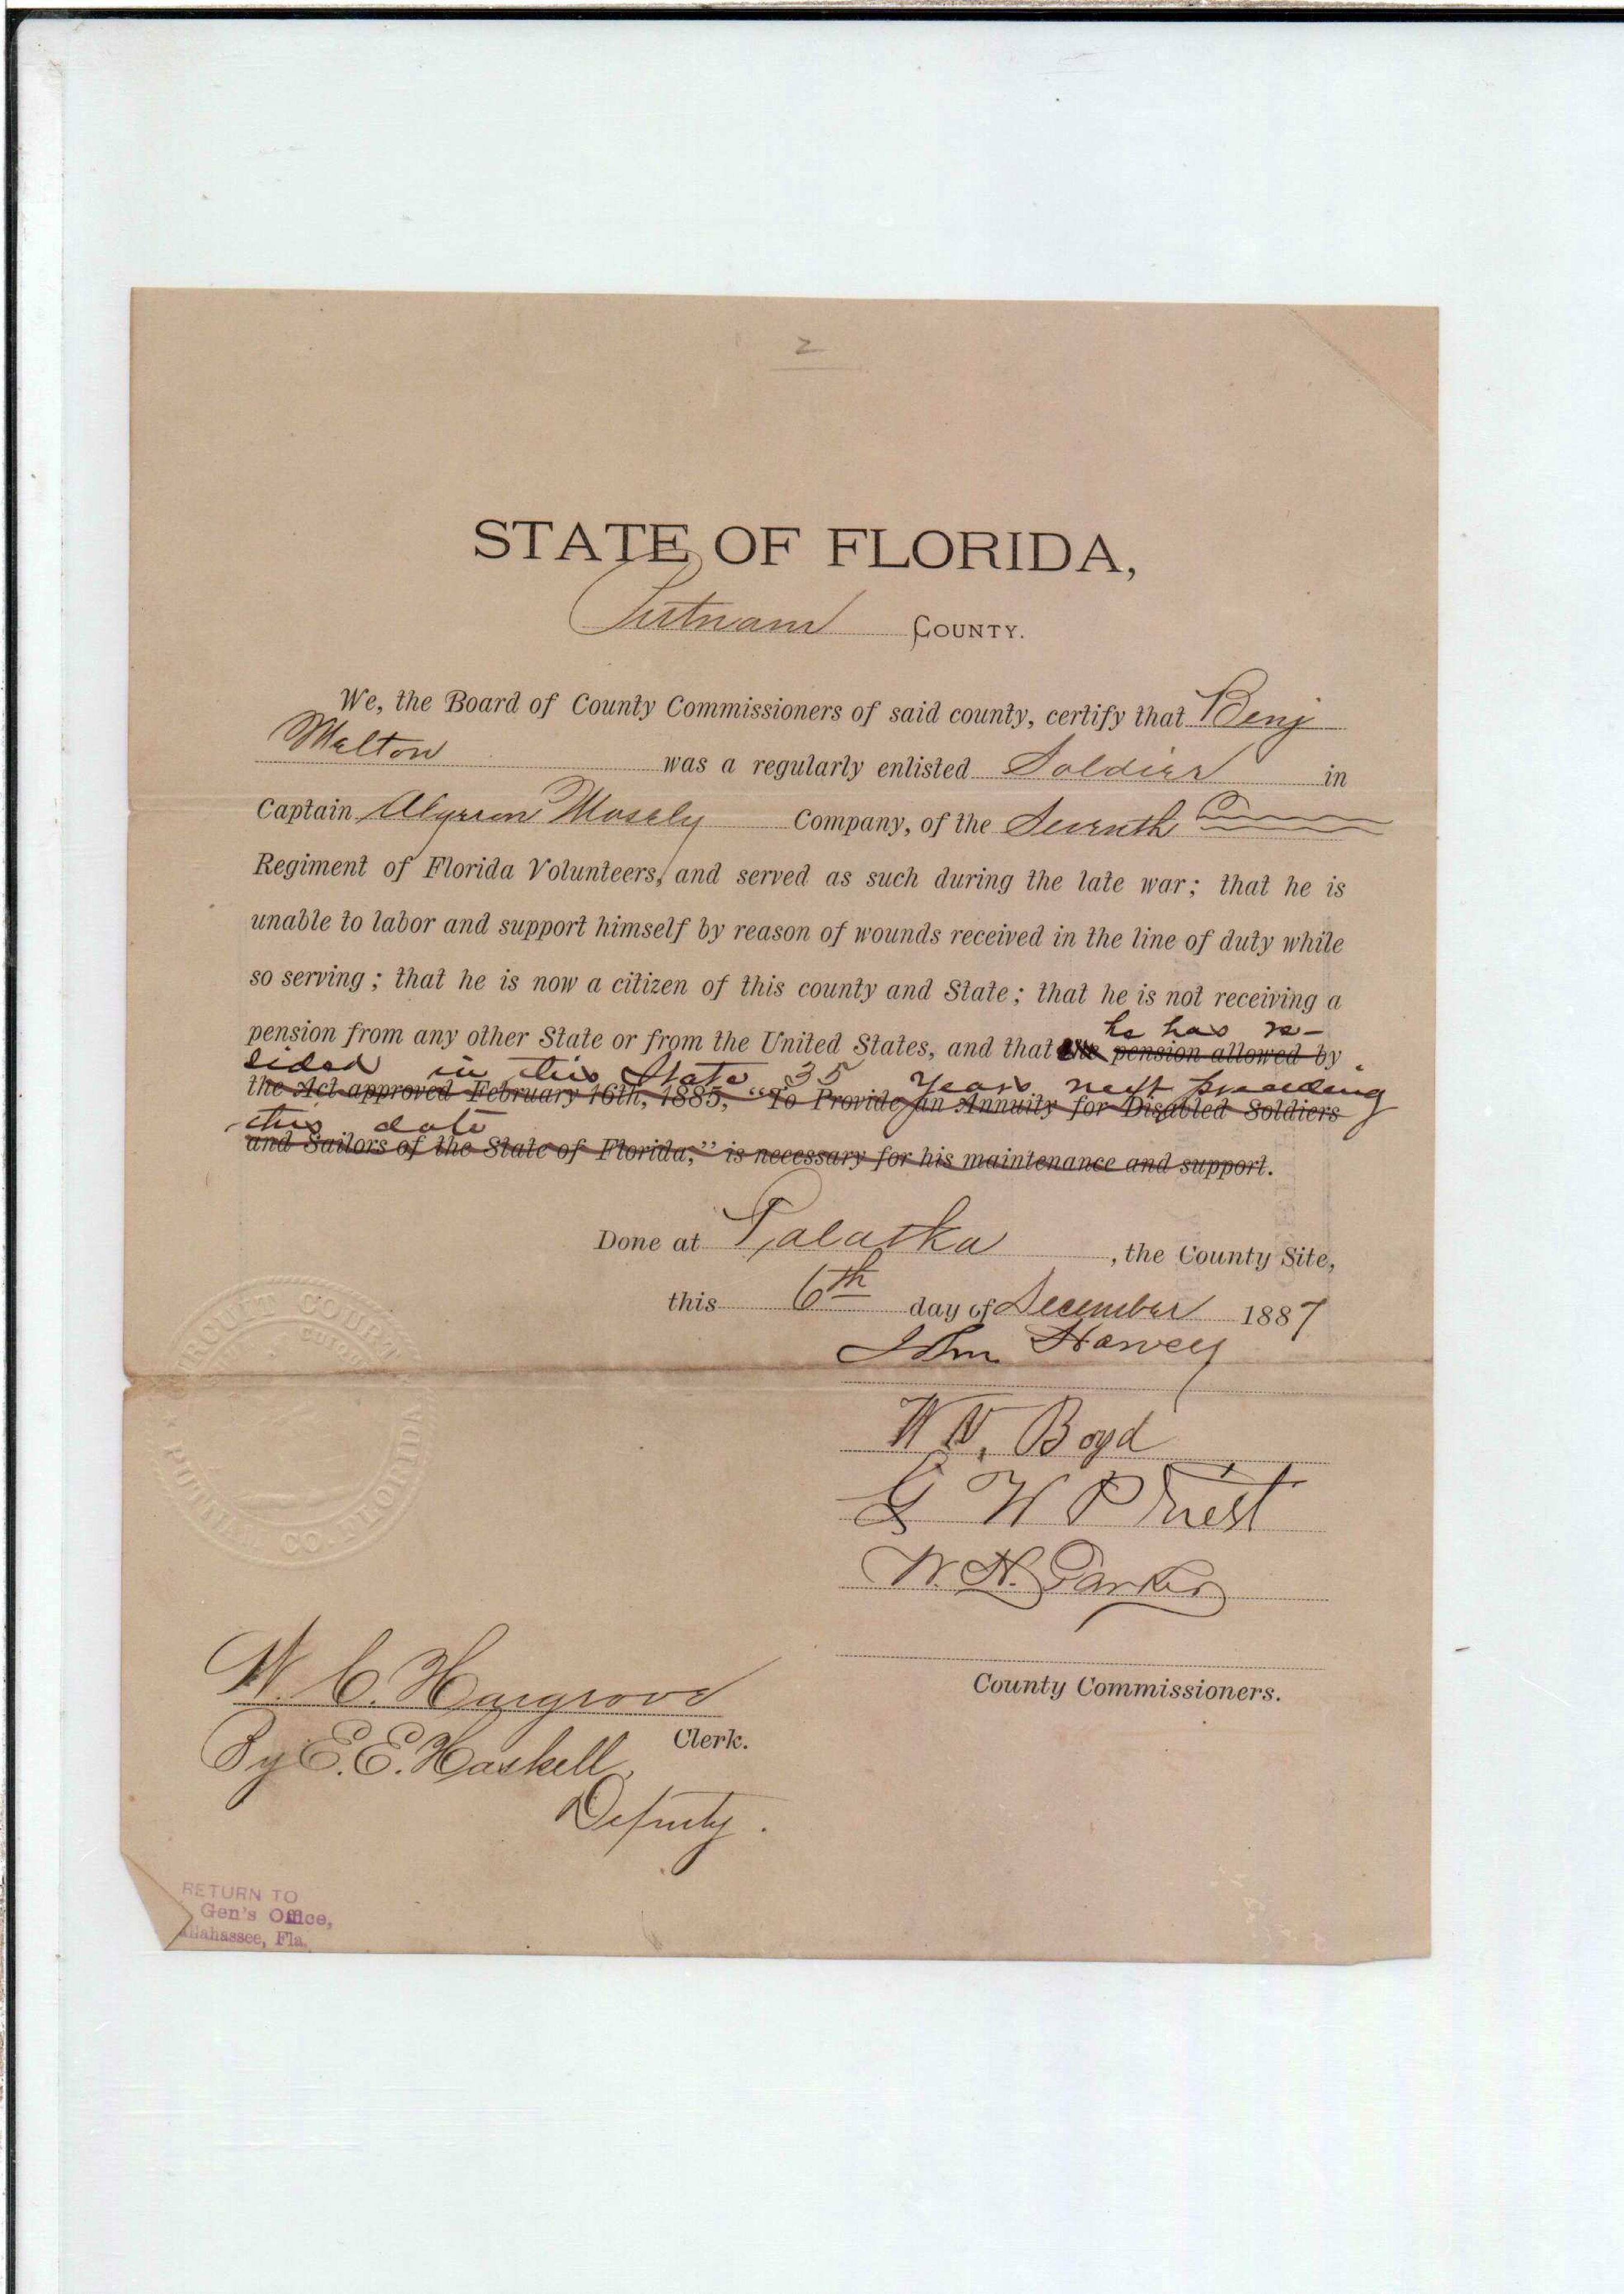 2
STATE OF FLORIDA,
Putnam COUNTY.
We, the Board of County Commissioners of said county, certify that Benj
Melton was a regularly enlisted Soldier in
Captain Mosely Company, of the Seventh
Regiment of Florida Volunteers, and served as such during the late war; that he is
unable to labor and support himself by reason of wounds received in the line of duty while
so serving; that he is now a citizen of this county and State; that he is not receiving a
he has re-
pension from any other State or from the United States, and that the pension allowed by
sided in this State 35 Years next preceeding
the Act approved February 16th, 1885, "To Provide an Annuity for Disabled Soldiers
this date
and Sailors of the State of Florida," is necessary for his maintenance and support.
Done at Palatka, the County Site,
this 6th day of December 1887
John Harvey
W N. Boyd
G W Priest
W. H. Parker
County Commissioners.
CIRCUIT COURT
PUTNAM CO. FLORIDA
W. C. Hargrove
Clerk.
By E. E. Haskell,
Deputy.
RETURN TO
Gen's Office,
allahassee, Fla.